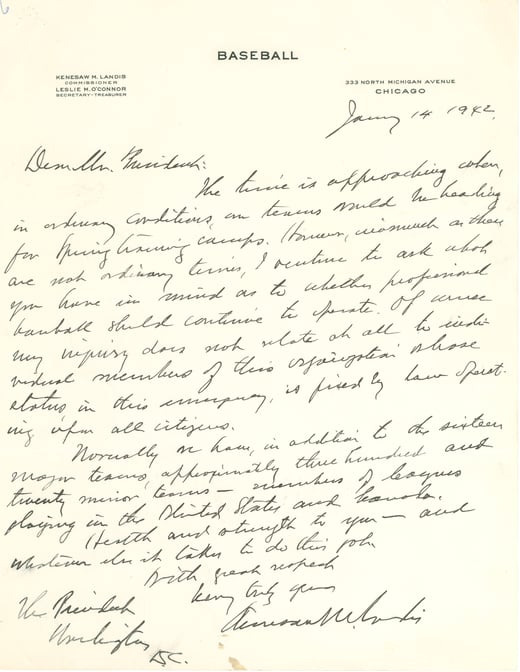 BASEBALL
KENESAW M. LANDIS
COMMISSIONER
LESLIE M. O'CONNOR
SECRETARY-TREASURER
333 NORTH MICHIGAN AVENUE
CHICAGO
Jany 14 1942.
Dear Mr. President:
The time is approaching when,
in ordinary conditions, our teams would be heading
for Spring training camps. However, inasmuch as these
are not ordinary times, I venture to ask what
you have in mind as to whether professional
baseball should continue to operate. Of course
my inquiry does not relate at all to indi-
vidual members of this organization whose
status, in this emergency, is fixed by law operat-
ing upon all citizens.
Normally we have, in addition to the sixteen
major teams, approximately three hundred and
twenty minor teams - members of leagues
playing in the United States and Canada.
Health and strength to you - and
whatever else it takes to do this job.
With great respect
Very truly yours
Kenesaw M. Landis
The President
Washington
D.C.